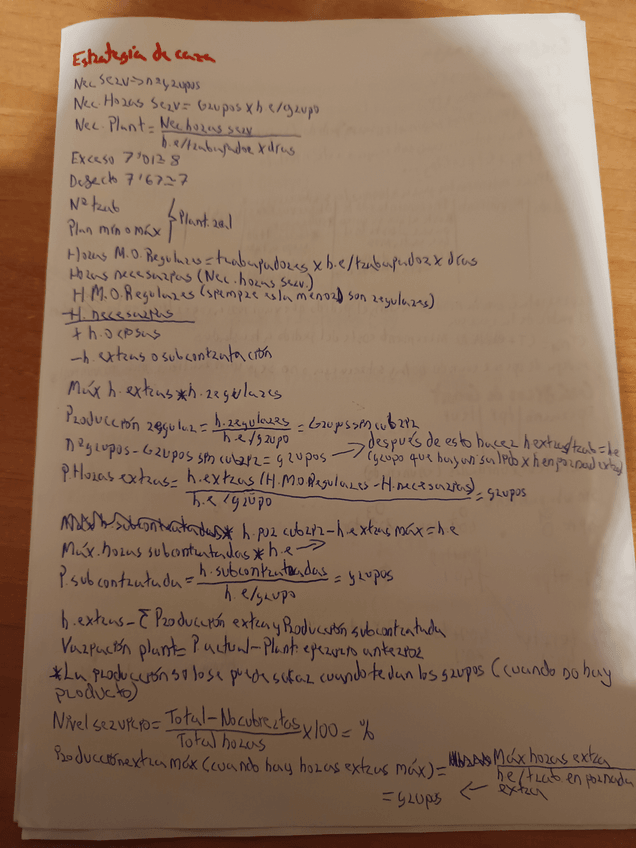 Estrategia de caza
Nec serv => nº grupos
Nec. Horas serv = Grupos x h e/grupo
Nec. Plant = Nec horas serv
h.e/trabajador x días
Exceso 7'01 ≃ 8
Defecto 7'67 ≃ 7
Nº trab
Plan mín o máx } Plant. real
Horas M.O. Regulares = trabajadores x h.e/trabajador x días
Horas necesarias (Nec. horas serv.)
H.M.O Regulares (siempre es la menor, son regulares)
- H. necesarias
+ h. ociosas
- h. extras o subcontratación
Máx h. extras * h. regulares
Producción regular = h. regulares = Grupos sin cubrir
h e/grupo
nº grupos - Grupos sin cubrir = grupos → después de esto hacer h extras/trab = he
(grupo que haya salido x h en jornada extra)
P. Horas extras = h. extras (H.M.O Regulares - H. necesarias) = grupos
h. e /grupo
h. por cubrir - h. extras máx = h e
Máx. horas subcontratadas * h e →
P. subcontratada = h. subcontratadas = grupos
h e/grupo
h. extras - Σ Producción extra y Producción subcontratada
Variación plant = P actual - Plant. ejercicio anterior
* La producción solo se puede sacar cuando te dan los grupos (cuando no hay
producto)
Nivel servicio = Total - No cubiertas x 100 = %
Total horas
Producción extra máx (cuando hay horas extras máx) = Máx horas extra
he/trab en jornada
extra
= grupos ←